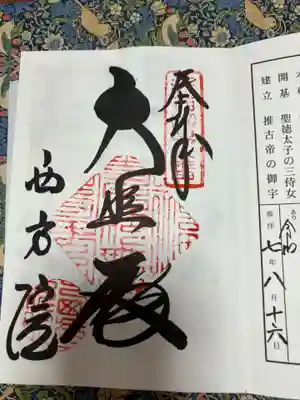 開基 聖徳太子の三侍女
建立 推古帝の御宇
参拝 令和七年八月十六日
奉拝
大悲殿
西方院